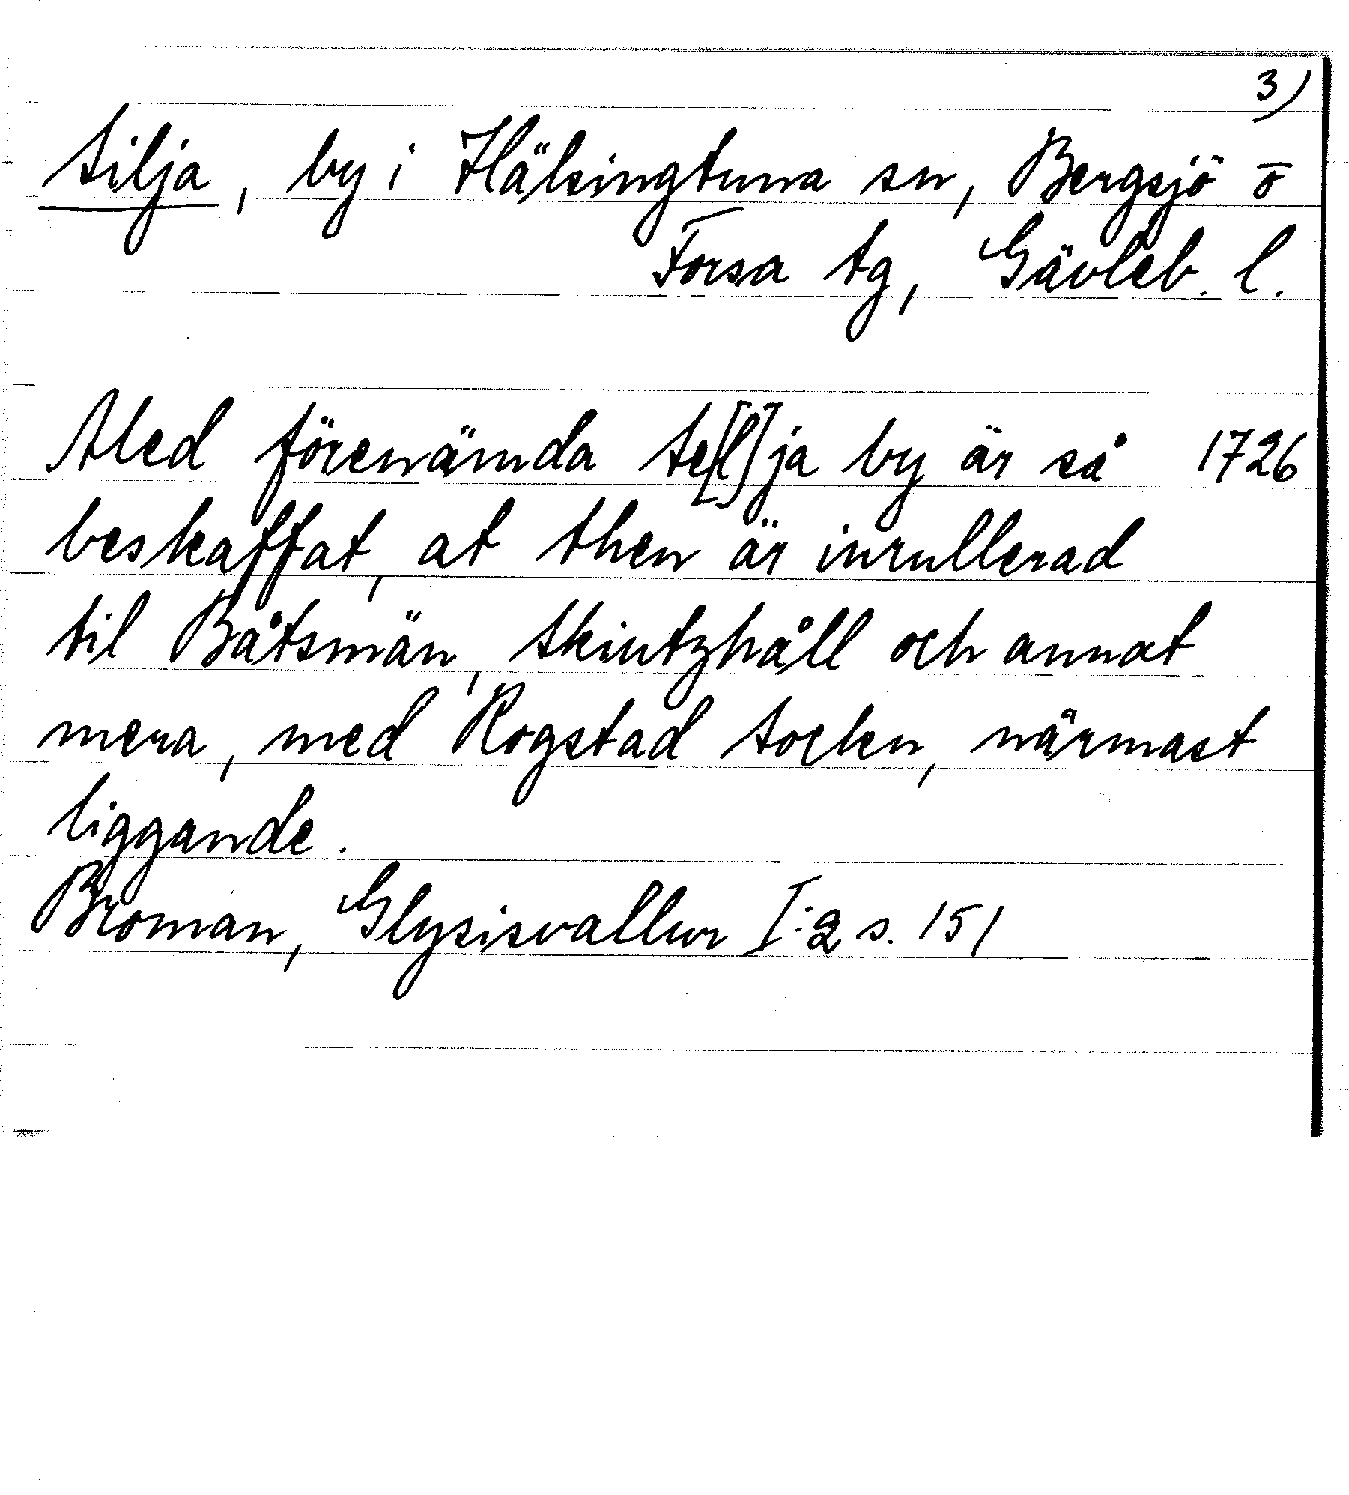 3)
Silja, by i Hälsingtuna sn, Bergsjö o
Forsa tg, Gävleb. l.
Med förenämda Se[l]ja by är så 1726
beskaffat, at then är inrullerad
til Båtsmän, Skiutzhåll och annat
mera, med Rogstad Socken, närmast
liggande.
Broman, Glysisvallur I:2 s. 151